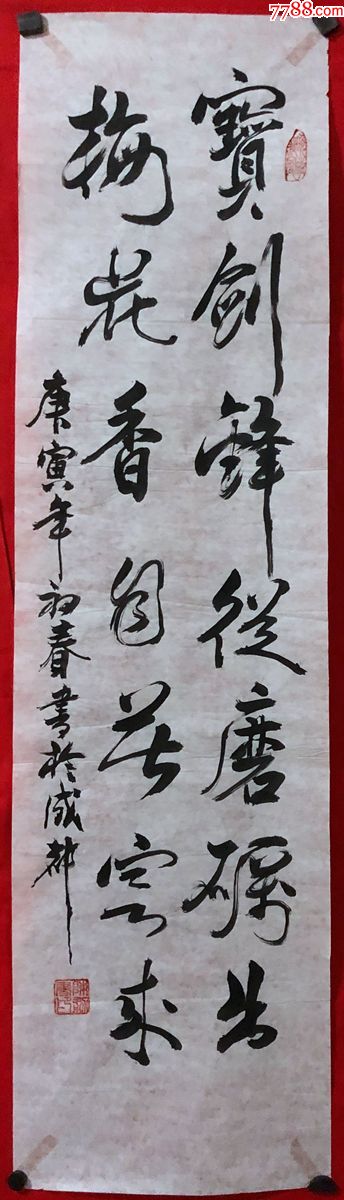 7788.com
寶劍鋒從磨礪出
梅花香自苦寒來
庚寅年初春書於成都